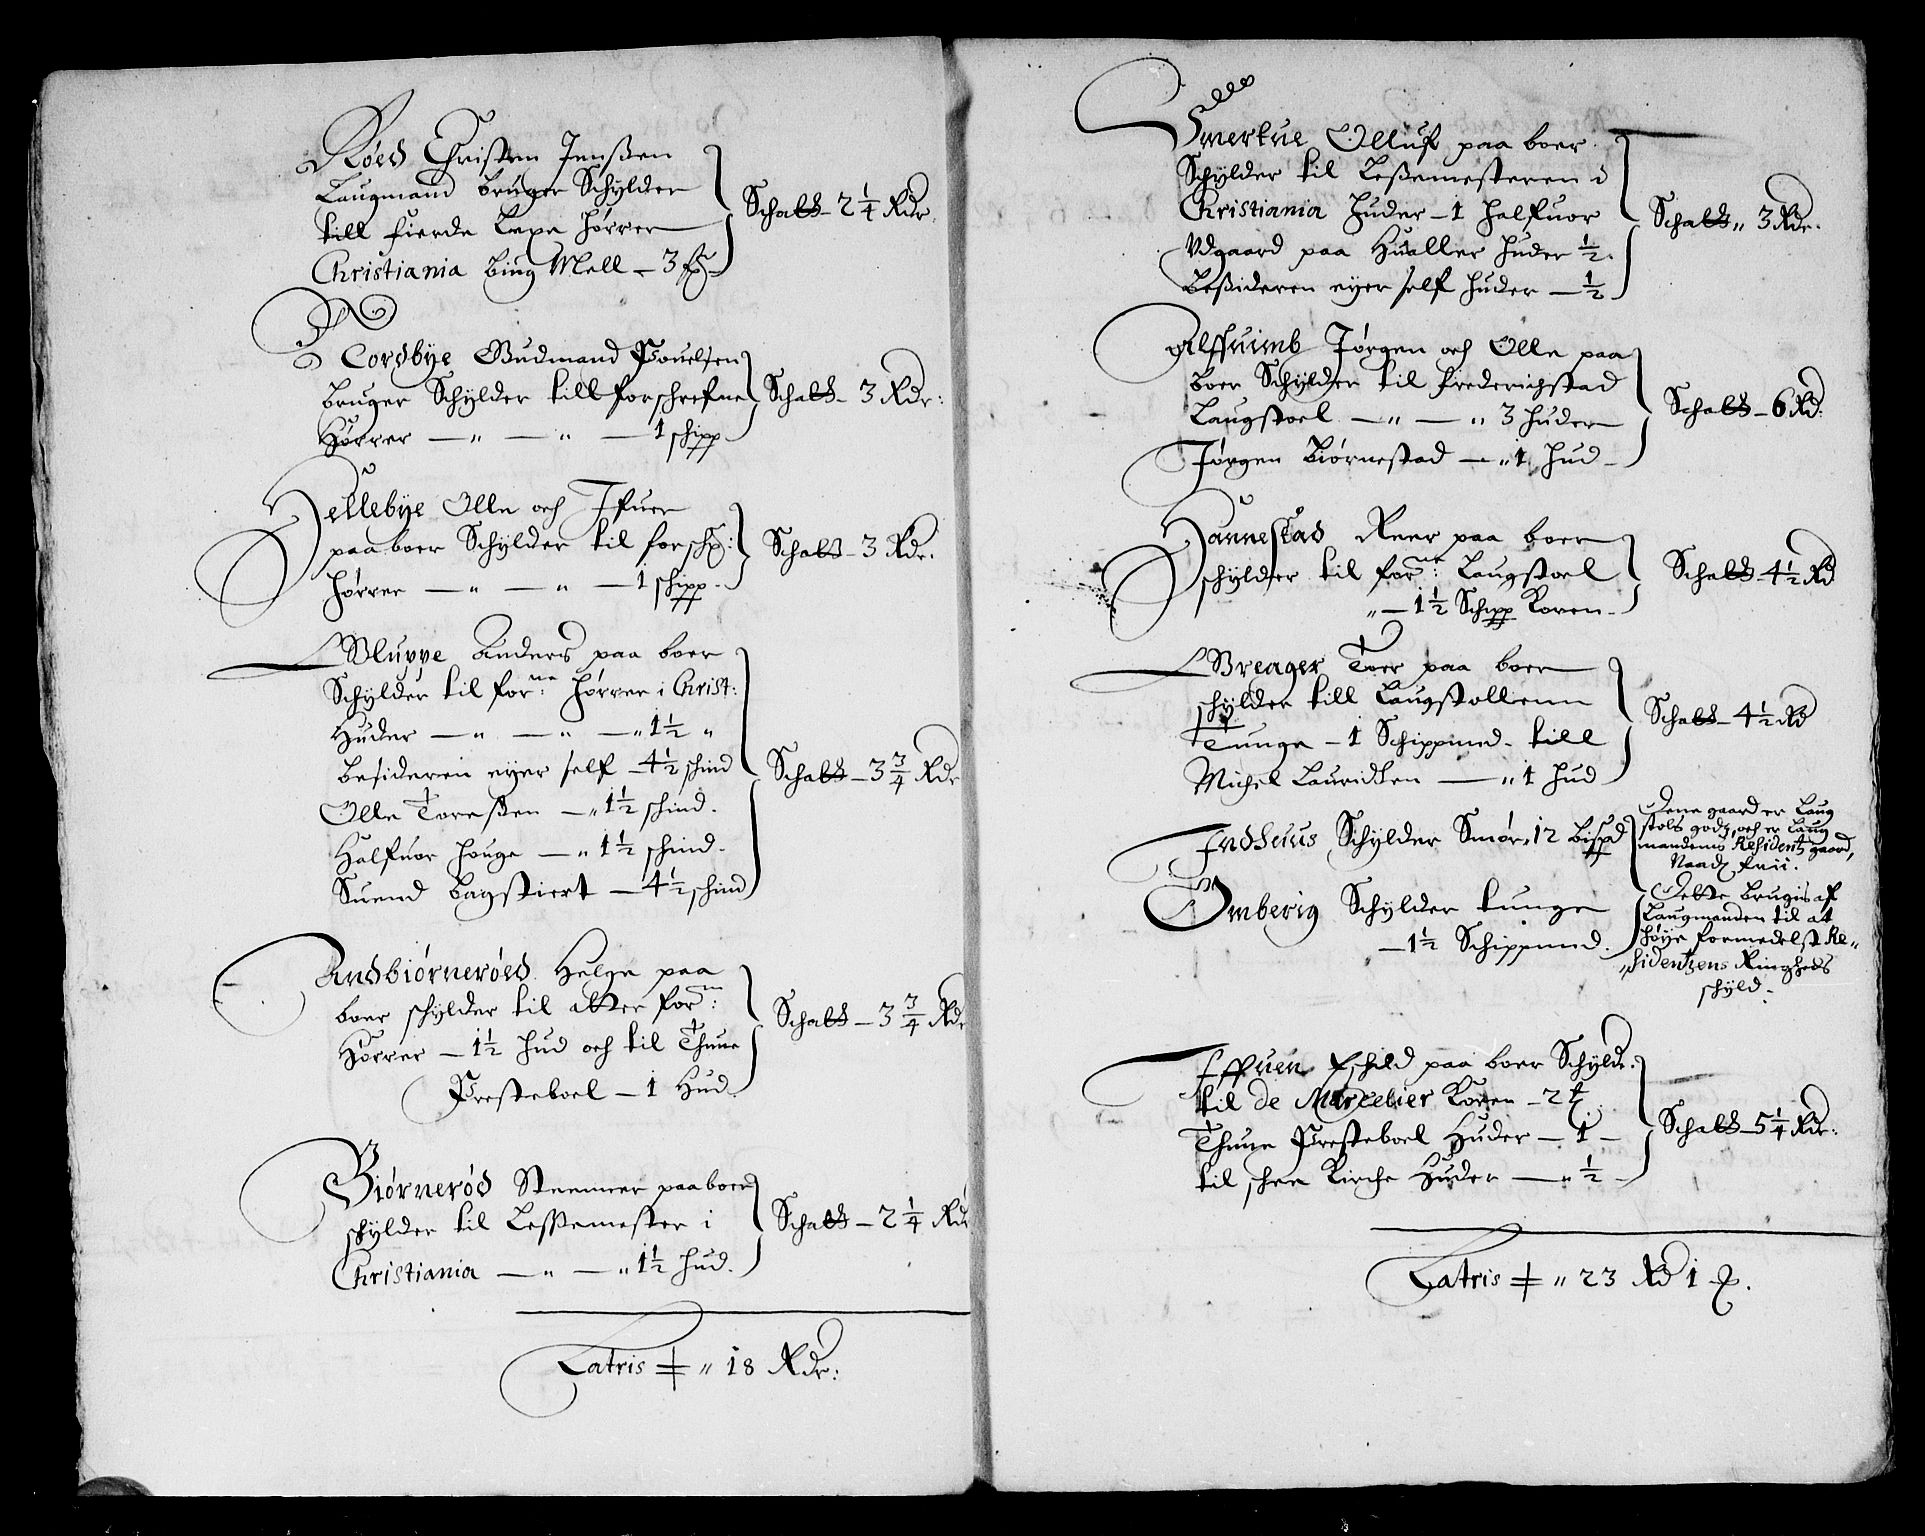 Røed Christen Jenßen
Laugmand bruger Schylder
till fierde Lexe hørrer
Christiania biug Mell – 3 ß –
Schatt – 2 1/4 Rdr.
Tordbye Gudmand Pouelsen
bruger Schylder till forschrefne
Hørrer — „ — „ — 1 schipp –
Schatt – 3 Rdr:
Hellebye Olle och Ifuer
paa boer Schylder til forschr:
hørrer — „ — „ — 1 schipp –
Schatt – 3 Rdr.
Gluppe Anders paa boer
Schylder til forne: hørrer i Christ:
Huder — „ — „ — „ 1 1/2 „
Besideren eyer self – 4 1/2 schind
Olle Toreßen — „ 1 1/2 schind.
Halfuor houge — „ 1 1/2 schind.
Suend bagstiert – 4 1/2 schind
Schatt – 3 3/4 Rdr
Sandbiørnerøed Helge paa
boer schylder til atter forn:
Hørrer – 1 1/2 hud och til Thune
Presteboel – 1 Hud
Schatt – 3 3/4 Rdr
Biørnerød Steenner paa boer
schylder til Leßemester i
Christiania — „ — „ 1 1/2 hud.
Schatt – 2 1/4 Rdr
Latris „ 18 Rdr:
Smertue Olluf paa boer
Schylder til Leßemesteren i
Christiania huder – 1 halfuor
Udgaard paa Hualler huder 1/2.
Beßideren eyer self huder — 1/2
Schatt „ 3 Rdr.
Alshuimb Jørgen och Olle paa
boer Schylder til Frederichstad
Laugstoel — „ — „ 3 huder
Jørgen Biørnestad — „ 1 hud –
Schatt – 6 Rd:
Hannestad Reer paa boer
schylder til forne: Laugstoel
„ — 1 1/2 Schipp Koren –
Schatt – 4 1/2 Rd
Greager Toer paa boer
schylder till Laugstollenn
Tunge – 1 Schippund – till
Michel Lauridtzen — „ 1 hud
Schatt – 4 1/2 Rd
Indseuus Schylder Smør „ 12 Bispd
Denne gaard er Laug
stols godz, och er Laug
mandens Residentz gaard,
Naadz frii.
Omberig Schylder tunge
– 1 1/2 Schippund.
Dette brugis af
Laugmanden til at
høye formedelst Re„
„sidentzens Ringheds
schyld.
Effuen Eschild paa boer Schyldr:
til de Marcelier Koren – 2 t
Thune Presteboel Huder – 1 –
til schee Kirche Huder — „ 1/2 –
Schatt – 5 1/4 Rdr:
Latris „ 23 Rd 1 ß.